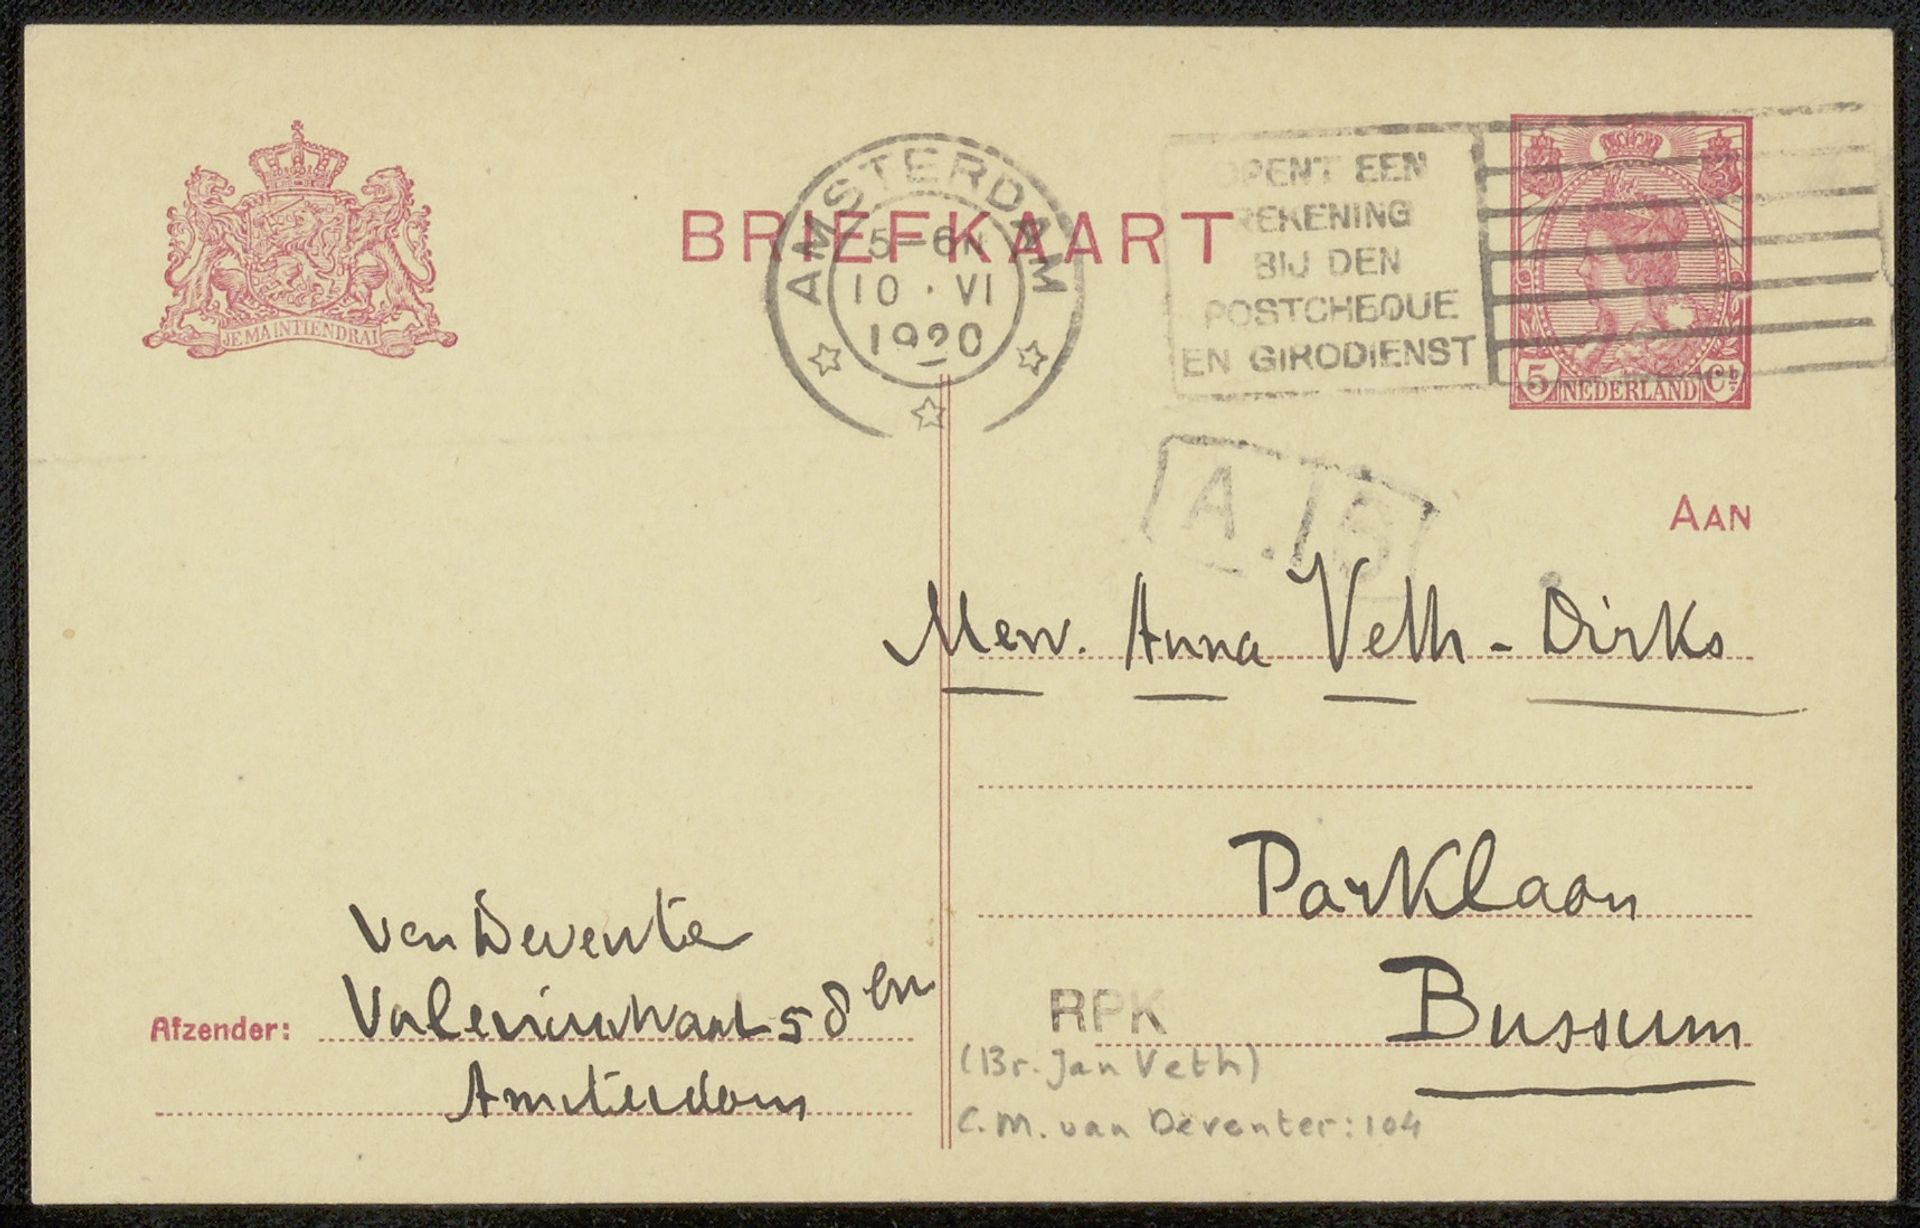 JE MAINTIENDRAI
BRIEFKAART
AMSTERDAM
5-6N
10·VI
1920
OPENT EEN
REKENING
BIJ DEN
POSTCHEQUE
EN GIRODIENST
5 NEDERLAND Ct
A.
AAN
Mew. Anna Veth-Dirks
Parklaan
Bussum
van Deventer
Afzender: Valeriusstraat 58
Amsterdam
RPK
(Br. Jan Veth)
C.M. van Deventer: 104